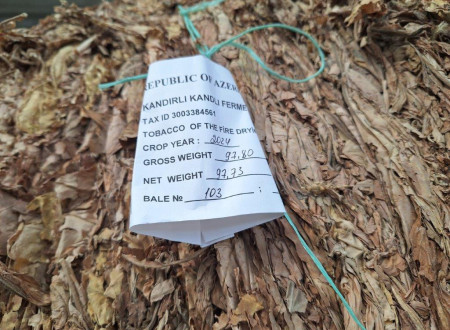 REPUBLIC OF AZER
KANDIRLI KANDLI FERME
TAX ID 3003384561
TOBACCO OF THE FIRE DRYI
CROP YEAR : 2024
GROSS WEIGHT 97,80
NET WEIGHT 97,73
BALE № 103 :